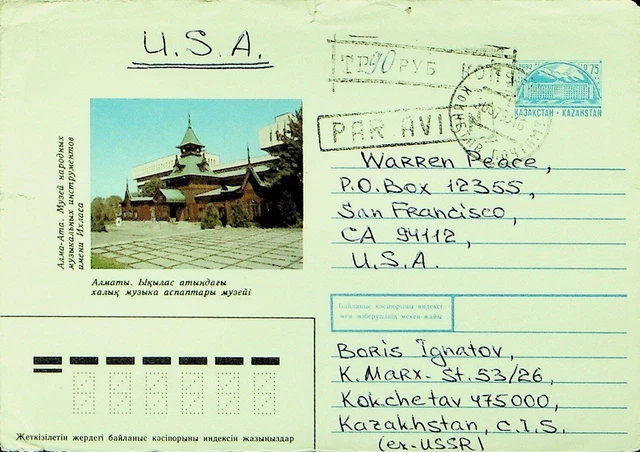 U.S.A.
90 РУБ КОП
PAR AVION
1992 0.75
ҚАЗАҚСТАН • KAZAHSTAN
Warren Peace,
P.O. Box 12355,
San Francisco,
CA 94112,
U.S.A.
Алма-Ата. Музей народных
музыкальных инструментов
имени Ихласа
Алматы. Ықылас атындағы
халық музыка аспаптары музейі
Байланыс кәсіпорыны индексі
мен жіберушінің мекен-жайы
Boris Ignatov,
K. Marx- St. 53/26,
Kokchetav 475000,
Kazakhstan, C.I.S.
(ex-USSR)
Жеткізілетін жердегі байланыс кәсіпорыны индексін жазыңыздар